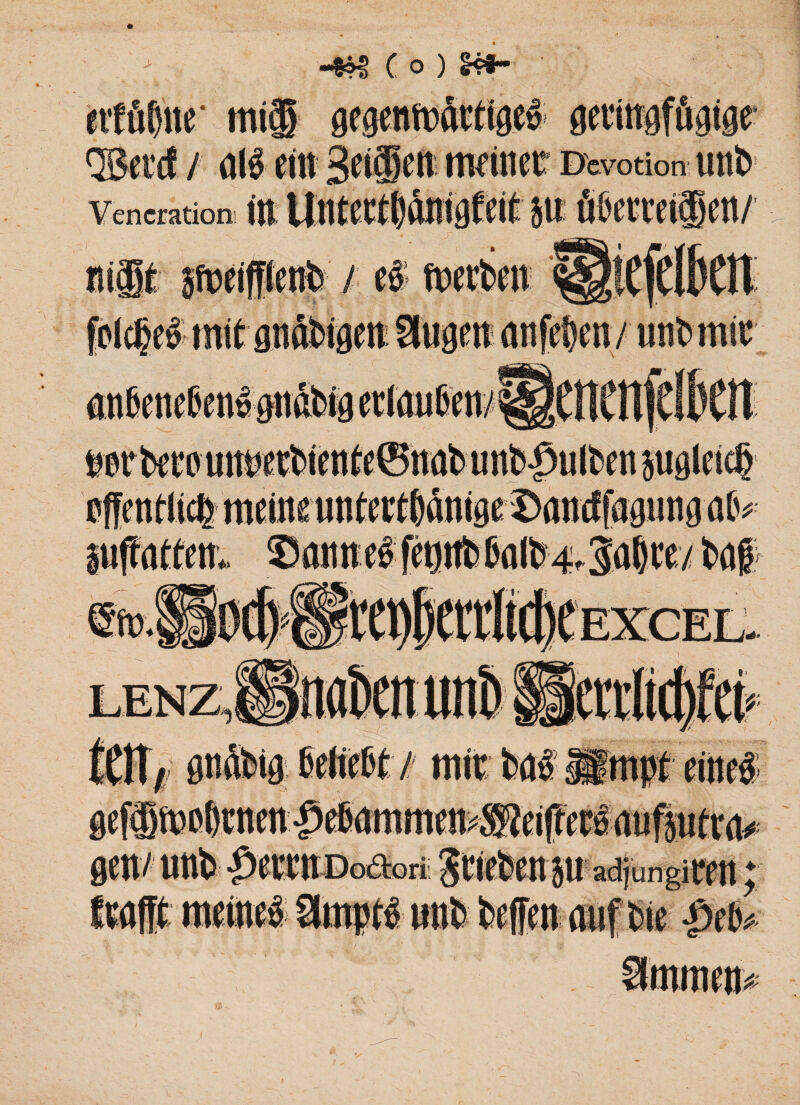 ( o )
erkühne mich gegenwärtiges geringfügige
Werck / als ein Zeichen meiner Devotion und
Veneration in Unterthänigkeit zu überreichen/
nicht zweifflend / es werden Dieselben
solches mit gnädigen Augen ansehen / und mir
anbenebens gnädig erlauben/ Denenselben
vor dero unverdiente Gnad und Hulden zugleich
offentlich meine unterthänige Dancksagung ab-
zustatten. Dann es seynd bald 4. Jahre / daß
Ew. Hoch-Freyherrliche EXCEL-
LENZ, Gnaden und Herrlichkei-
ten, gnädig beliebt / mir das Ampt eines
geschwohrnen Hebammen-Meisters aufzutra-
gen / und Herrn Doctori Frieden zu adjungiren;
krafft meines Ampts und dessen auf die Heb-
Ammen-